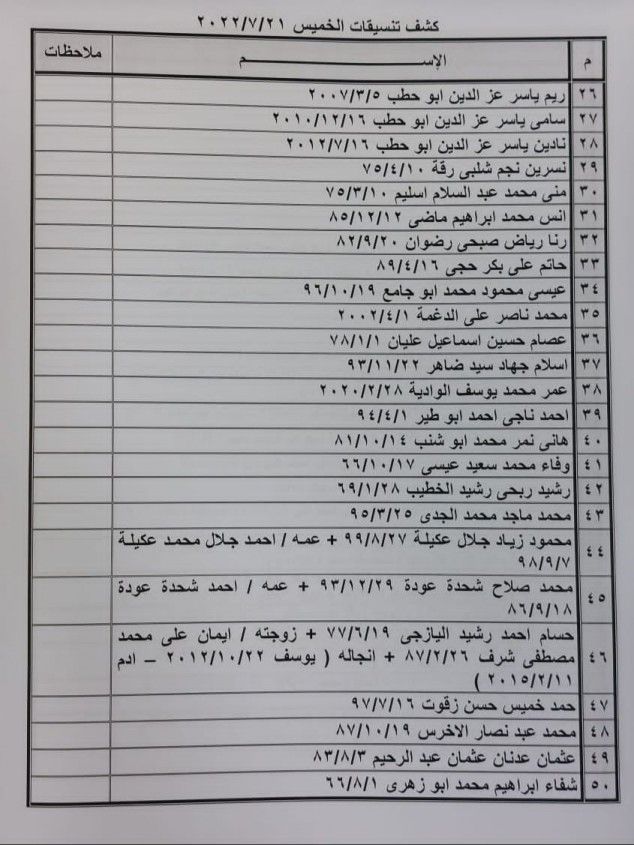 كشف تنسيقات الخميس ٢٠٢٢/٧/٢١
م الإســـــــم ملاحظات
٢٦ ريم ياسر عز الدين ابو حطب ٢٠٠٧/٣/٥
٢٧ سامى ياسر عز الدين ابو حطب ٢٠١٠/١٢/١٦
٢٨ نادين ياسر عز الدين ابو حطب ٢٠١٢/٧/١٦
٢٩ نسرين نجم شلبى رقة ٧٥/٤/١٠
٣٠ منى محمد عبد السلام اسليم ٧٥/٣/١٠
٣١ انس محمد ابراهيم ماضى ٨٥/١٢/١٢
٣٢ رنا رياض صبحى رضوان ٨٢/٩/٢٠
٣٣ حاتم على بكر حجى ٨٩/٤/١٦
٣٤ عيسى محمود محمد ابو جامع ٩٦/١٠/١٩
٣٥ محمد ناصر على الدغمة ٢٠٠٢/٤/١
٣٦ عصام حسين اسماعيل عليان ٧٨/١/١
٣٧ اسلام جهاد سيد ضاهر ٩٣/١١/٢٢
٣٨ عمر محمد يوسف الوادية ٢٠٢٠/٢/٢٨
٣٩ احمد ناجى احمد ابو طير ٩٤/٤/١
٤٠ هانى نمر محمد ابو شنب ٨١/١٠/١٤
٤١ وفاء محمد سعيد عيسى ٦٦/١٠/١٧
٤٢ رشيد ربحى رشيد الخطيب ٦٩/١/٢٨
٤٣ محمد ماجد محمد الجدى ٩٥/٣/٢٥
٤٤ محمود زياد جلال عكيلة ٩٩/٨/٢٧ + عمه / احمد جلال محمد عكيلة
٩٨/٩/٧
٤٥ محمد صلاح شحدة عودة ٩٣/١٢/٢٩ + عمه / احمد شحدة عودة
٨٦/٩/١٨
حسام احمد رشيد اليازجى ٧٧/٦/١٩ + زوجته / ايمان على محمد
٤٦ مصطفى شرف ٨٧/٢/٢٦ + انجاله ( يوسف ٢٠١٢/١٠/٢٢ – ادم
٢٠١٥/٢/١١ )
٤٧ حمد خميس حسن زقوت ٩٧/٧/١٦
٤٨ محمد عبد نصار الاخرس ٨٧/١٠/١٩
٤٩ عثمان عدنان عثمان عبد الرحيم ٨٣/٨/٣
٥٠ شفاء ابراهيم محمد ابو زهرى ٦٦/٨/١